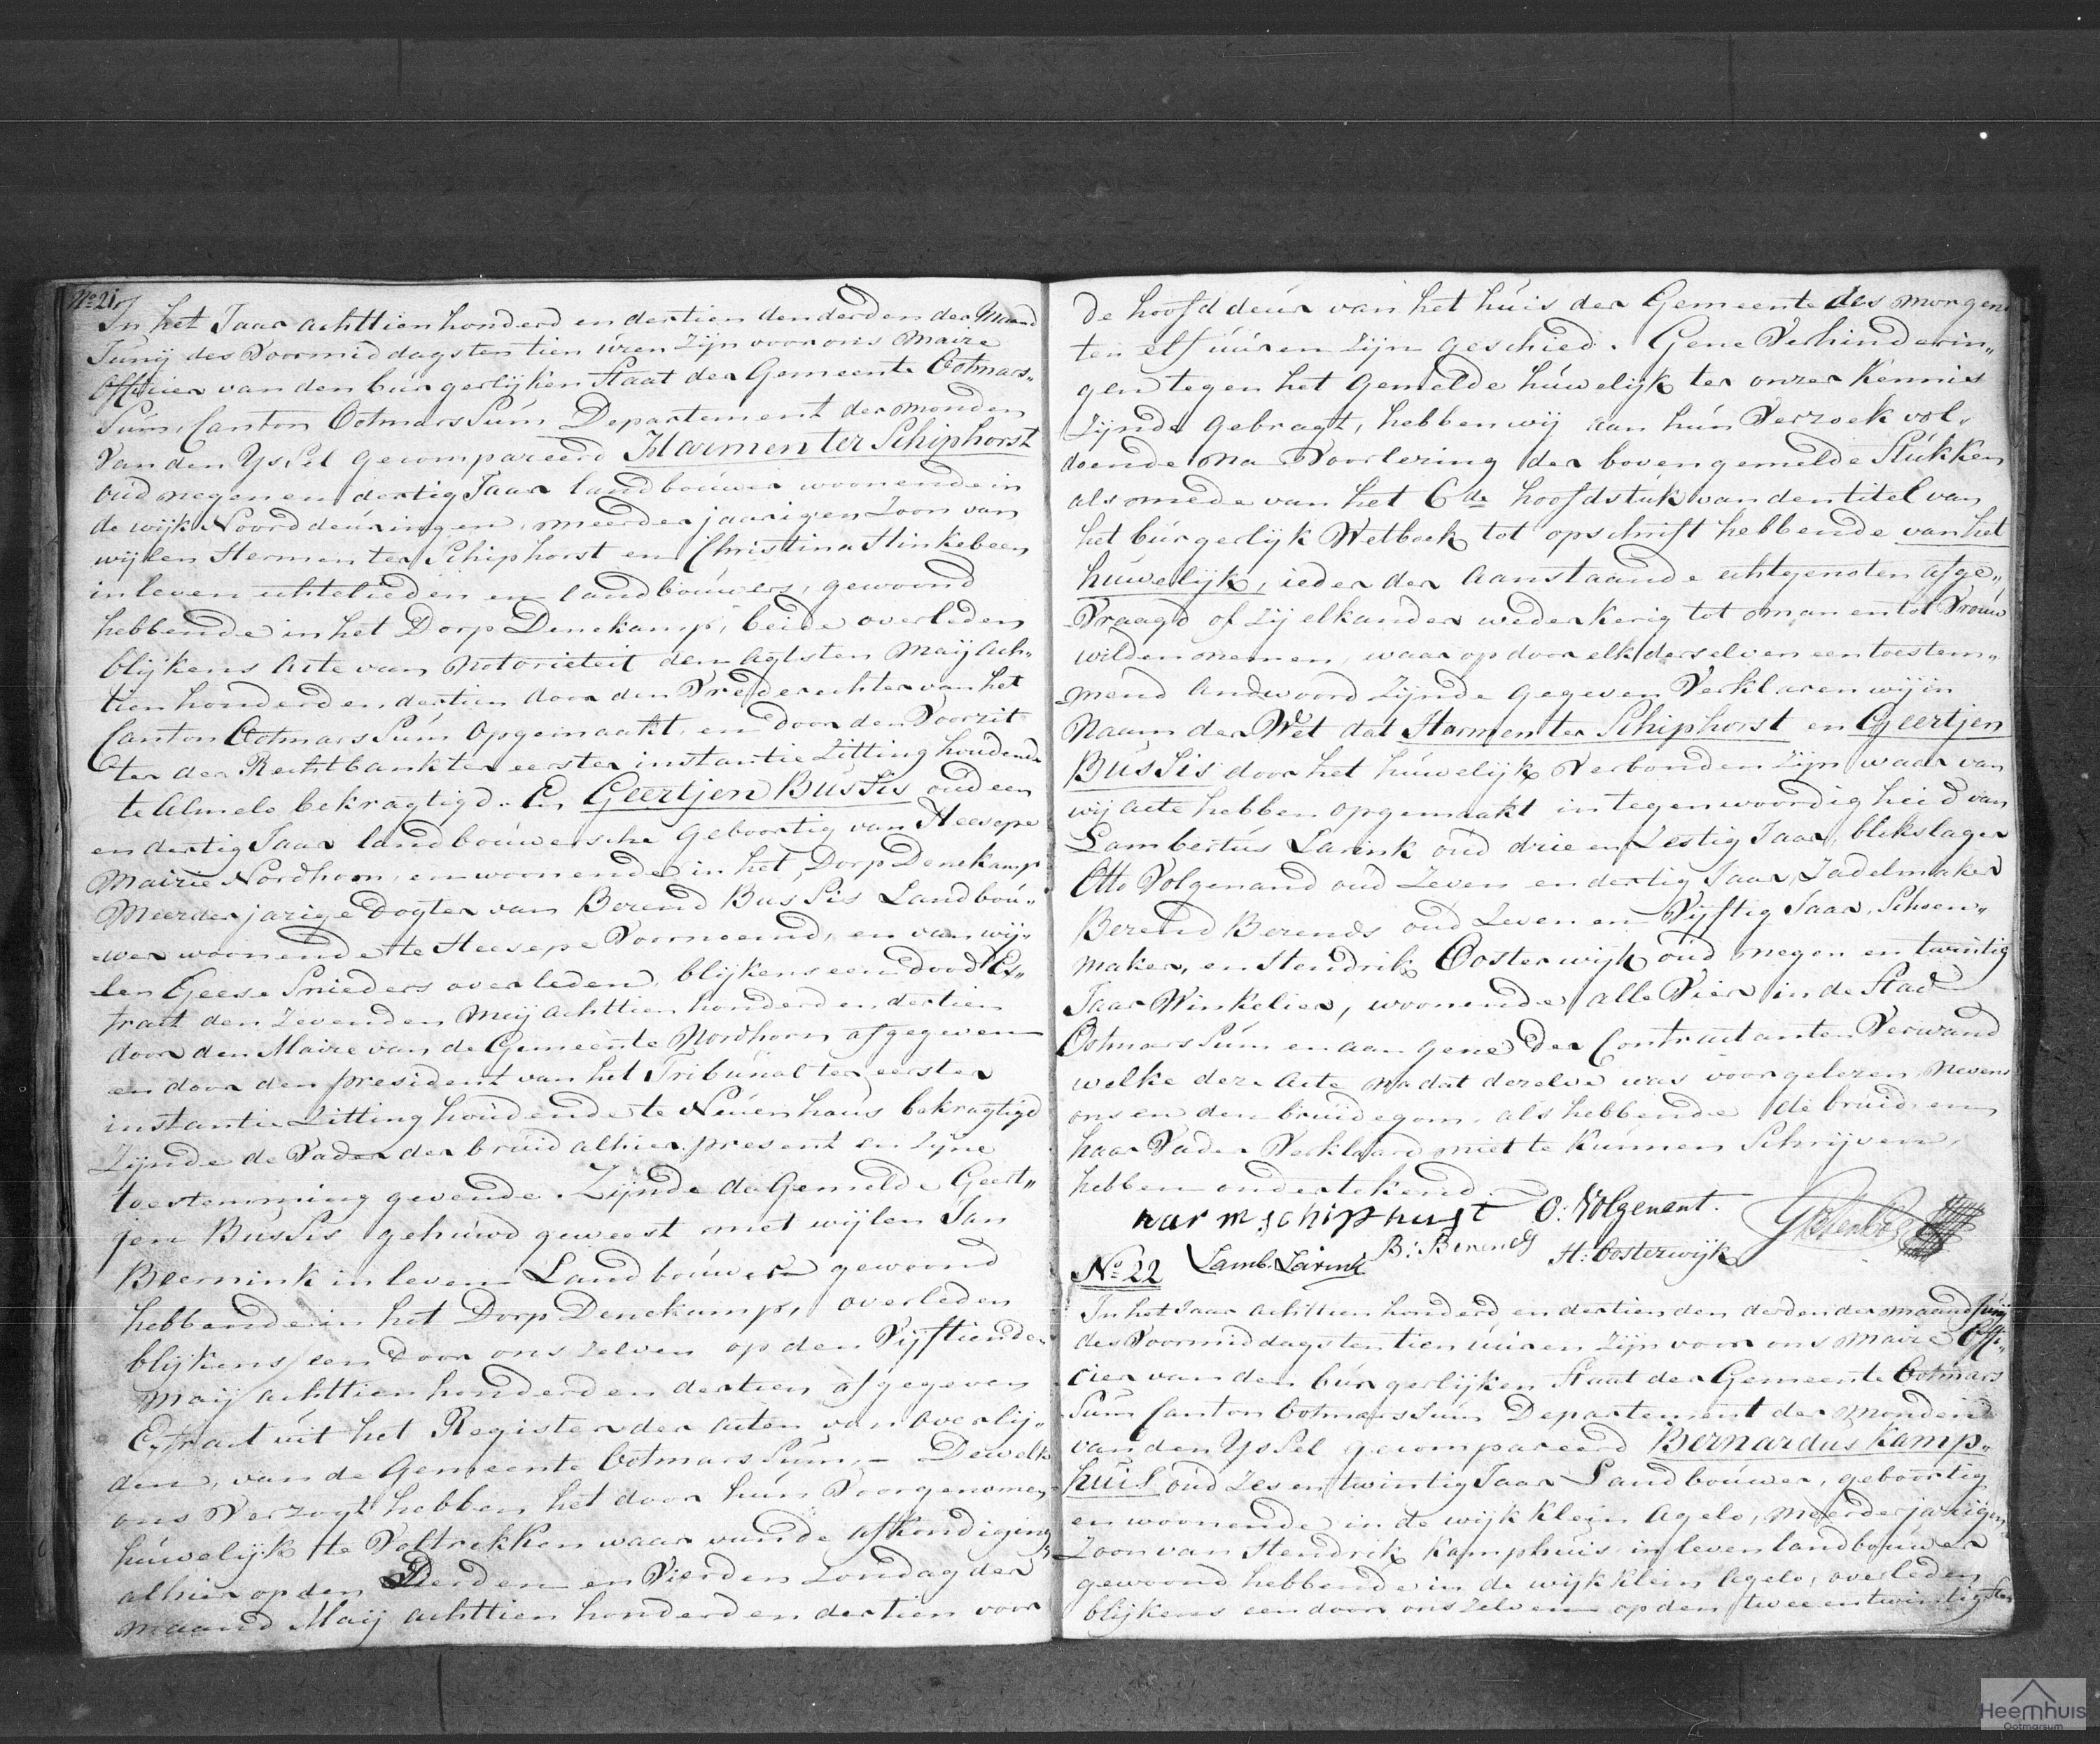 No 21
In het Jaar achttien honderd en dertien den derden der Maand
Junij des Voormiddags ten tien úren zijn voor ons Maire
Officier van den búrgerlijken Staat der Gemeente Ootmars„
Súm, Canton Ootmarssúm Departement der monden
van den Yssel gecompareerd Harmen ter Schiphorst
oúd negen en dertig Jaar landboúwer woonende in
de wijk Noord deúringen, meerderjaarigen Zoon van
wijlen Hermen ter Schiphorst en Christina Hinkebeen
in leven echtelieden en landboúwers, gewoond
hebbende in het Dorp Denekamp, beide overleden
blijkens acte van notorieteit den agtsten Maij ach„
tien honderd en dertien door den Vrederechter van het
Canton Ootmarssúm opgemaakt, en door den Voorzit
ter der Rechtbank ter eerster instantie Zitting houdende
te Almelo bekragtigd. En Geertjen Bússis oúd een
en dertig Jaar landboúwersche geboortig van Heesepe
Mairie Nordhorn, en woonende in het Dorp Denekamp
Meerderjarige Dogter van Berend Bussis Landboú„
wer woonende te Heesepe Voornoemd, en van wij„
len Geese Snieders overleden, blijkens een dood Ex„
tract den Zevenden Meij achttien honderd en dertien
door den Maire van de Gemeente Nordhorn afgegeven
en door den president van het Tribúnal ter eerster
instantie Zitting hoúdende te Neúenhaús bekragtigd
Zijnde de Vader der brúid alhier present en Zijne
toestemming gevende. Zijnde de Gemelde Geert„
jen Bússis gehúwd geweest met wijlen Jan
Beernink in leven Landboúwer gewoond
hebbende in het Dorp Denekamp, overleden
blijkens een door ons zelven op den Vijftienden
Maij achttien honderd en dertien afgegeven
Extract úit het Register der acten van overlij„
den, van de Gemeente Ootmarssúm, - Dewelke
ons Verzogt hebben het door hún Voorgenomen
húwelijk te Voltrekken waar van de afkondiging
alhier op den Derden en Vierden Zondag der
maand Maij achttien honderd en dertien voor
de hoofd deúr van het húis der Gemeente des morgens
ten elf úúren zijn geschied. Gene Verhinderin„
gen tegen het gemelde húwelijk ter onzer kennis
Zijnde gebragt, hebben wij aan hún Verzoek vol„
doende na Voorlezing der bovengemelde Stúkken
als mede van het 6de hoofdstúk van den titel van
het búrgerlijk Wetboek tot opschrift hebbende van het
húwelijk, ieder der aanstaande echtgenoten afge„
Vraagd of zij elkander wederkerig tot man en tot Vroúw
wilden nemen, waar op door elk derselven een toestem„
mend andwoord Zijnde gegeven Verklaren wij in
Naam der Wet dat Harmen ter Schiphorst en Geertjen
Bússis door het húwelijk Verbonden Zijn waar van
wij acte hebben opgemaakt in tegenwoordigheid van
Lambertús Larink oúd drie en Zestig Jaar, blikslager
Otto Volgenand oúd Zeven en dertig Jaar, Zadelmaker
Berend Berends oúd Zeven en Vijftig Jaar, Schoen„
maker, en Hendrik Oosterwijk oúd negen en twintig
Jaar Winkelier, woonende alle Vier in de Stad
Ootmarssúm en aan gene der Contractanten Verwand
welke deze acte na dat dezelve was voorgelezen, nevens
ons en den brúidegom, als hebbende de brúid, en
haar Vader Verklaard niet te kúnnen Schrijven,
hebben ondertekend.
harm schiphurst O: Volgenent.
Lamb. Larink B: Berends H: Oosterwijk
No 22
In het Jaar achttien honderd en dertien den derden der maand Junij
des Voormiddags ten tien úúren zijn voor ons Maire Offi„
cier van den búrgerlijken Staat der Gemeente Ootmars
Súm Canton Ootmarssúm Departement der Monden
van den Yssel gecompareerd Bernardus Kamp„
húis oúd Zes en twintig Jaar Landboúwer, geboortig
en woonende in de wijk klein Agelo, meerderjarigen
Zoon van Hendrik Kamphúis in leven landboúwer
gewoond hebbende in de wijk klein Agelo, overleden
blijkens een door ons zelven op den twee en twintigsten
Heemhuis
Ootmarsum